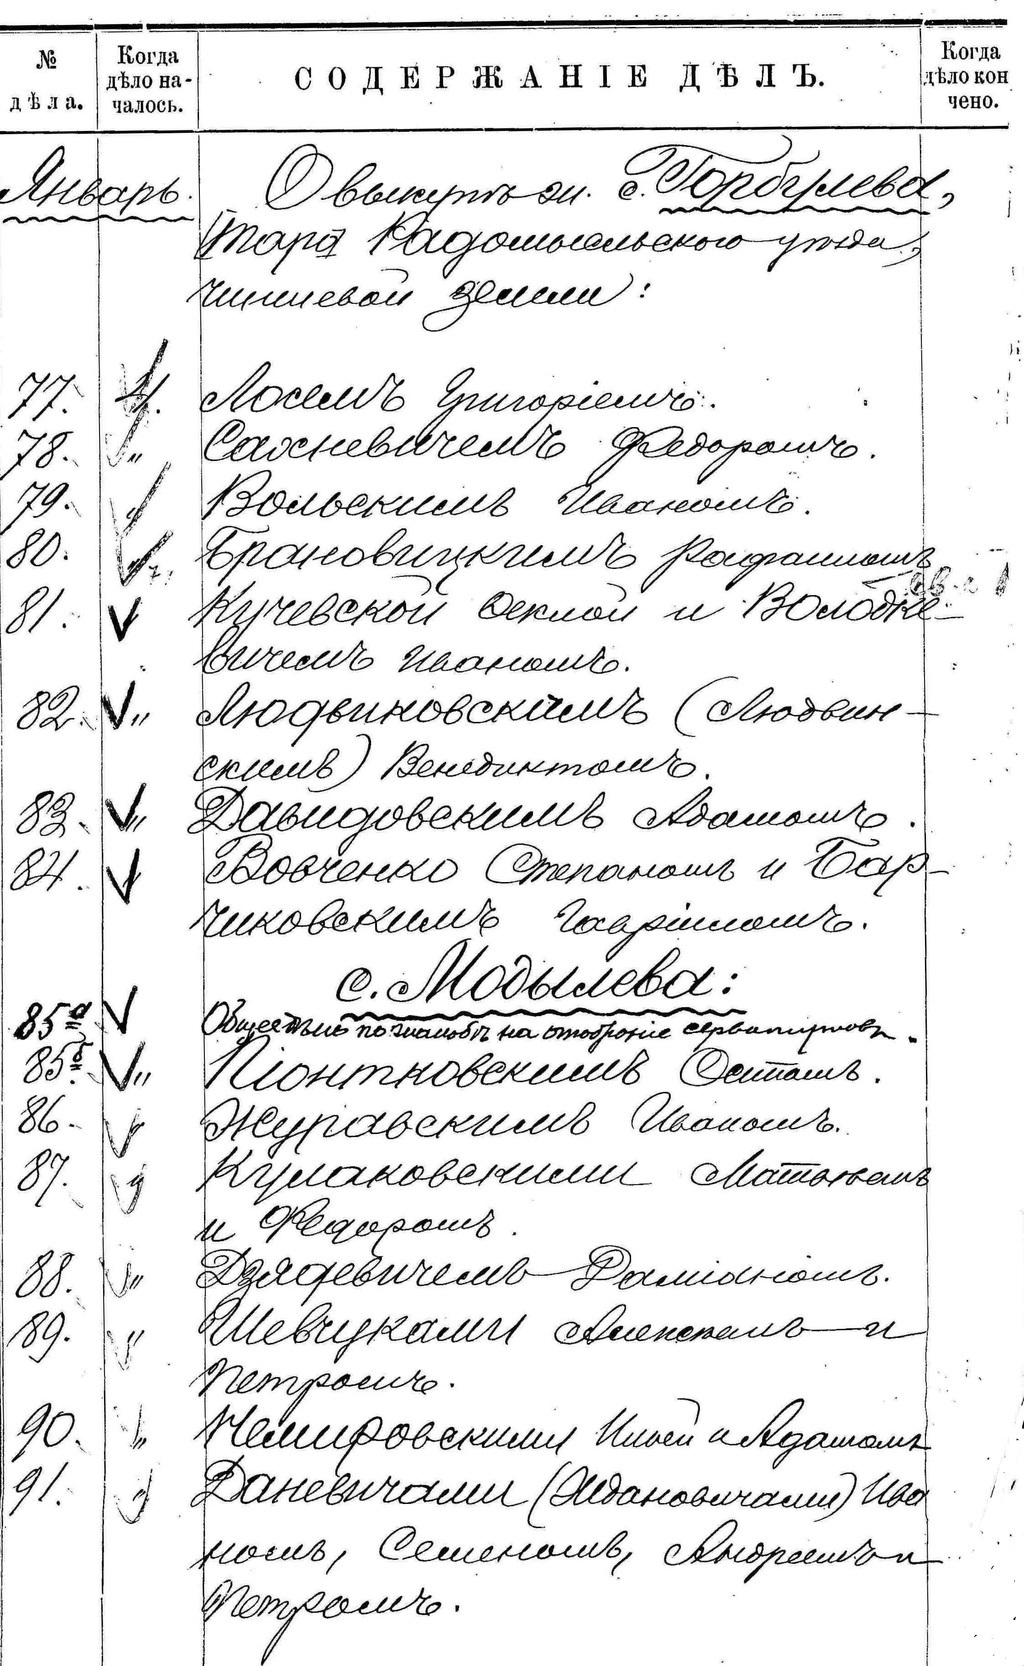 № дѣла.
Когда дѣло на-чалось.
СОДЕРЖАНІЕ ДѢЛЪ.
Когда дѣло кон чено.
Январь. О выкупѣ жи. с. Горбулева,
Радомысльского уѣзда,
чиншевой земли:
77. 4. Лосемъ Григоріемъ.
78. " Сахневичемъ Федоромъ.
79. Вольскимъ Иваномъ.
80. Брановицкимъ Рафаиломъ
81. Кучевской Феклой и Володке-
вичемъ Иваномъ.
82. " Людвиковскимъ (Людвин-
скимъ) Венедиктомъ.
83. " Давидовскимъ Адамомъ.
84. Вовченко Степаномъ и Бар-
чиковскимъ Гавріиломъ.
с. Модылева:
85а Обществъ по на отобраніе сервитутовъ.
85б. " Піонтковскимъ Осипомъ.
86. Журавскимъ Иваномъ.
87. Кулаковскими Матвѣемъ
и Федоромъ.
88. " Дзядевичемъ Даміаномъ.
89. " Шевчуками Алексѣемъ и
Петромъ.
90. " Немировскими Ильей и Адамомъ
91. Даневичами (Ждановичами) Ива
номъ, Семеномъ, Андреемъ и
Петромъ.